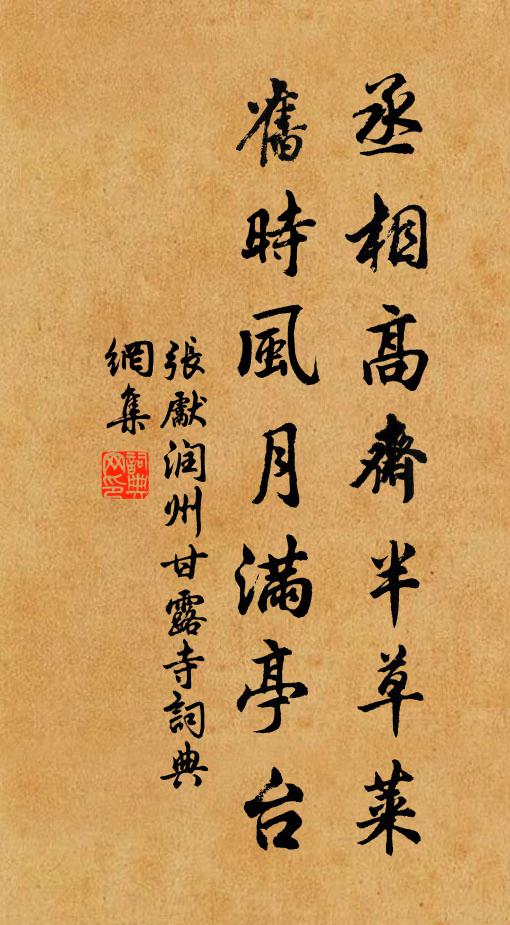 丞相高齋半草萊
舊時風月滿亭台
張獻润州甘露寺詞典
網集
詞典網印